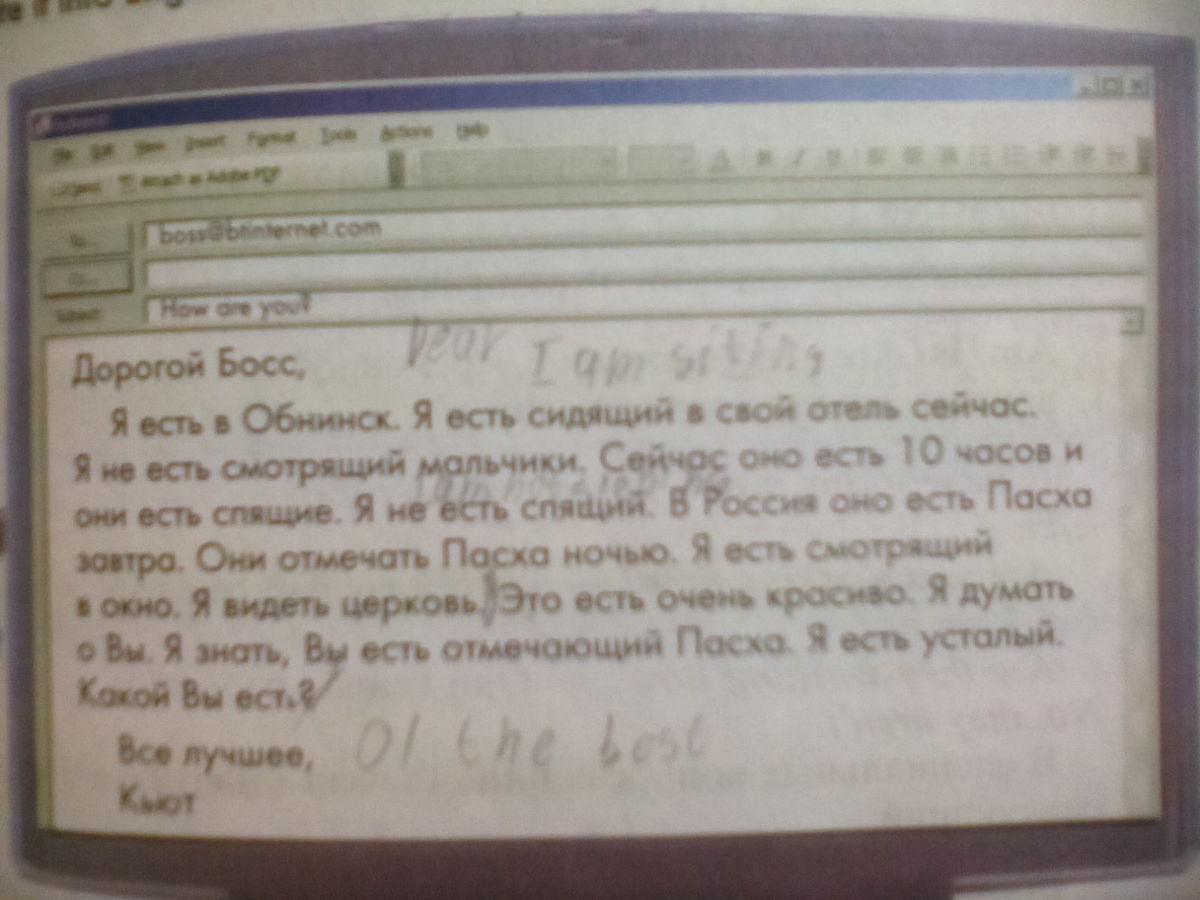 File Edit View Insert Format Tools Actions Help
Attach as Adobe PDF
To...
boss@btinternet.com
Subject: How are you?
Dear I am siting
Дорогой Босс,
Я есть в Обнинск. Я есть сидящий в свой отель сейчас.
Я не есть смотрящий мальчики. Сейчас оно есть 10 часов и
I am not
они есть спящие. Я не есть спящий. В Россия оно есть Пасха
завтра. Они отмечать Пасха ночью. Я есть смотрящий
в окно. Я видеть церковь. Это есть очень красиво. Я думать
о Вы. Я знать, Вы есть отмечающий Пасха. Я есть усталый.
Какой Вы есть?
Все лучшее, Ol the best
Кьют